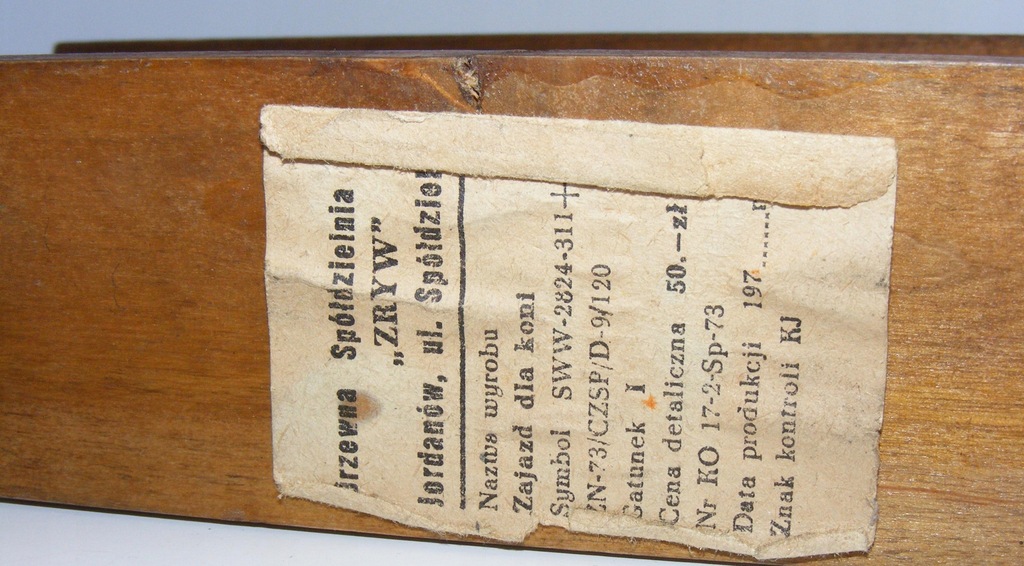 rzewna Spółdzielnia
„ZRYW”
Jordanów, ul. Spółdziel
Nazwa wyrobu
Zajazd dla koni
Symbol SWW-2824-311-
ZN-73/CZSP/D-9/120
Gatunek I
Cena detaliczna 50.—zł
Nr KO 17-2-Sp-73
Data produkcji 197.......r
Znak kontroli KJ